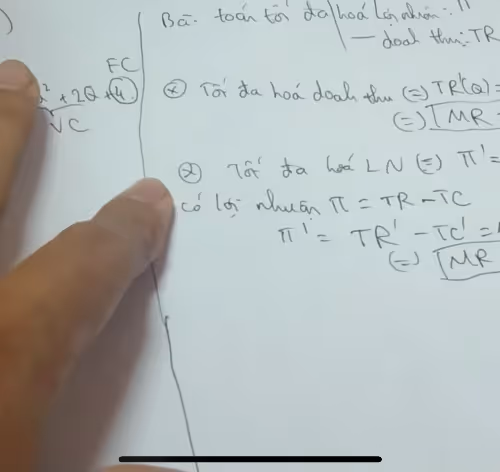 )
FC
² + 2Q + 4
VC
Bài toán tối đa hoá Lợi nhuận: π
— doanh thu: TR
(*) Tối đa hoá doanh thu (=) TR'(Q) =
(=) MR
(*) Tối đa hoá LN (=) π' =
có lợi nhuận π = TR - TC
π' = TR' - TC' =
(=) MR